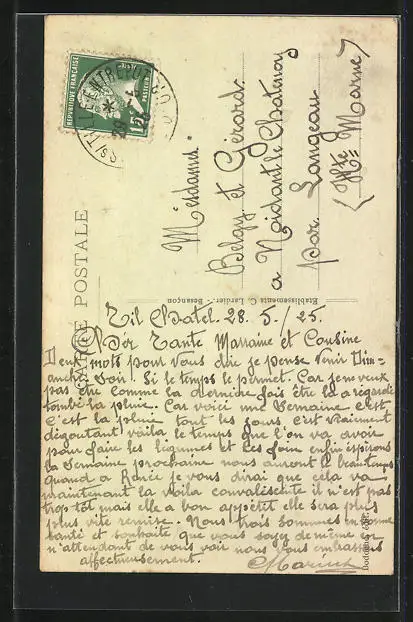 CARTE POSTALE
REPUBLIQUE FRANÇAISE
POSTES
15c
Mesdames
Belgy et Gérard
a Noidant le Chatenoy
par Langeau
(Hte Marne)
Etablissements C. Lardier - Besançon
Til Chatel. 28. 5. / 25.
Cher Tante Marraine et Cousine
Deux mots pour vous dire je pense venir Dim=
anche soir. Si le temps le permet. Car je ne veux
pas etre comme la dernière fois être la a regarde
tombé la pluie. Car voici une Semaine c'est
c'est la pluie tout les jours c'est vraiement
dégoutant voila le temps que l'on va avoir
pour faire les légumes et les foin enfin espérons
la Semaine prochaine nous auront le beau temps
quand a Renée je vous dirai que cela va
maintenant la voila convalescente il n'est pas
trop tôt mais elle a bon appétit elle sera plus
plus vite remise. Nous trois sommes en bonne
santé et souhaite que vous soyez de même en
n'attendant de vous voir nous vous embrassons
affectueusement.